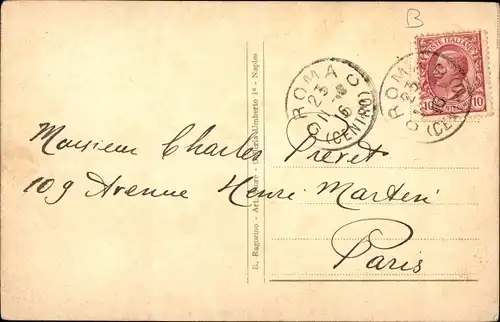 B
POSTE ITALIANE
10 10
ROMA
23
11
16
(CENTRO)
ROMA
23
(CENTRO)
Monsieur Charles Prevet
109 Avenue Henri Martin
Paris
E. Ragozino - Art. - Galleria Umberto Iº - Naples